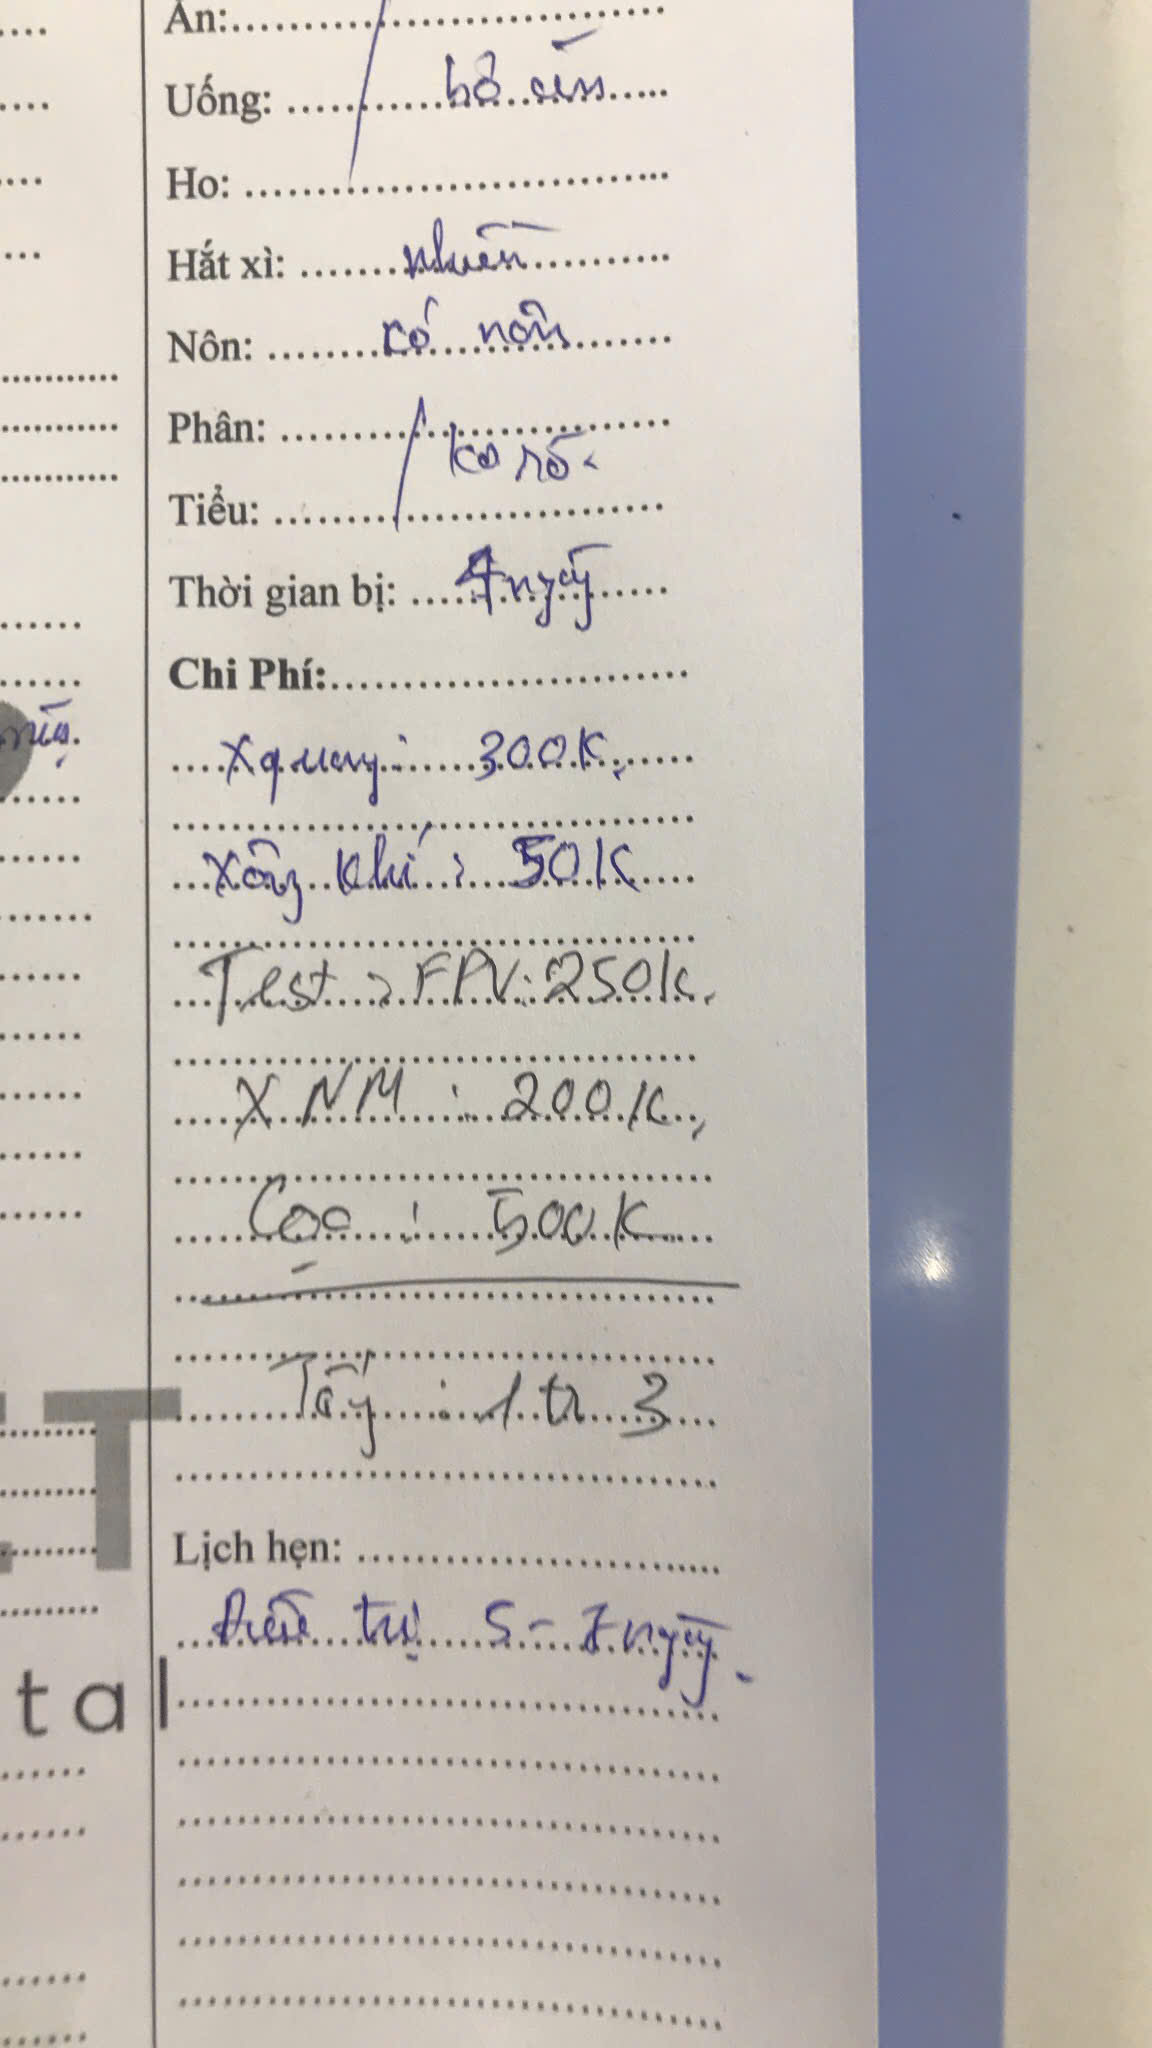 Ăn:
Uống: bỏ ăn
Ho:
Hắt xì: nhiều
Nôn: có nôn
Phân:
ko rõ.
Tiểu:
Thời gian bị: 4 ngày
Chi Phí:
X quang: 300K,
Xông khí: 50K
Test: FPV: 250K,
XNM: 200K,
Cọc: 500K
: 1 tr 3
T
Lịch hẹn:
Điều trị 5-7 ngày.
tal